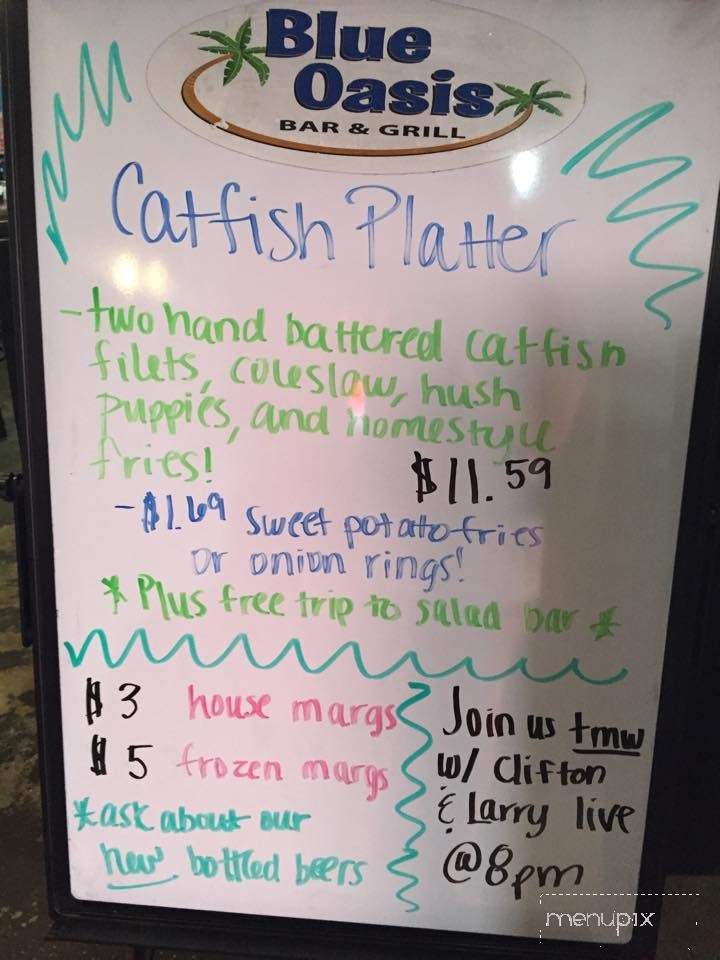 Blue
Oasis
BAR & GRILL
Catfish Platter
- two hand battered catfish
filets, coleslaw, hush
puppies, and homestyle
fries!
$11.59
- $1.69 sweet potato fries
or onion rings!
* Plus free trip to salad bar *
$3 house margs
$5 frozen margs
*ask about our
new bottled beers
Join us tmw
w/ Clifton
& Larry live
@8pm
menupix